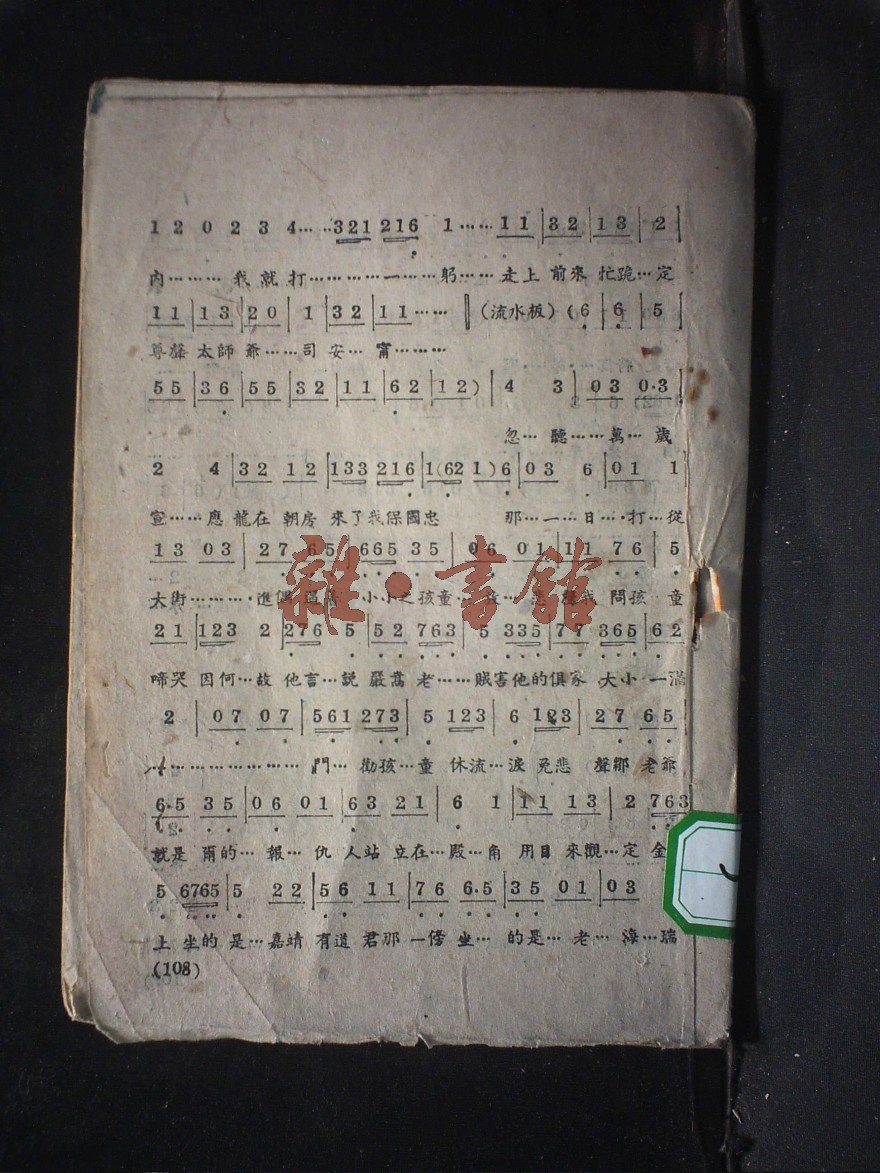 1 2 0 2 3 4… …321 216 1……11|32|13|2|
內………我就打…………一…躬……走上前來忙跪…定
11|13|20|1|32|11……‖(流水板)(6|6|5|
尊聲太師爺……司安…甯………
55|36|55|32|11|62|12)|4 3|03 0·3|
忽…聽……萬…歲
2 4|32 12|133 216|1(62 1)6|03 6|01 1|
宣……應龍在朝房來了我保國忠 那…一…日…打…從
13 03|27 65|665 35|06 01|11 76|5
大街………進偶 小小之孩童 我問孩童
21|123 2|276 5|52 763|5 335|77 365|62
啼哭因何…故他言…說嚴嵩老……賊害他的俱家大小一滿
2|07 07|561 273|5 123|6 123|27 65|
門…勸孩…童休流…淚免悲聲那老爺
6·5 35|06 01|63 21|6 1|11 13|2 763
就是爾的…報…仇人站立在…殿…角用目來觀…定金
5 6765|5 22|56 11|76 6·5|35 01|03
上坐的是…嘉靖有道君那一傍坐…的是…老…海…瑞
(108)
雜·書館